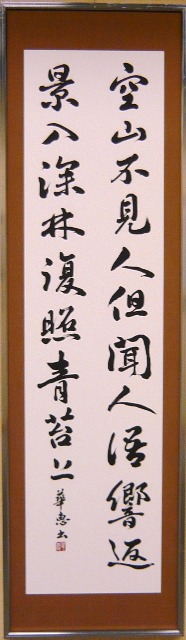 空山不見人但聞人語響返
景入深林復照青苔上
華恵書